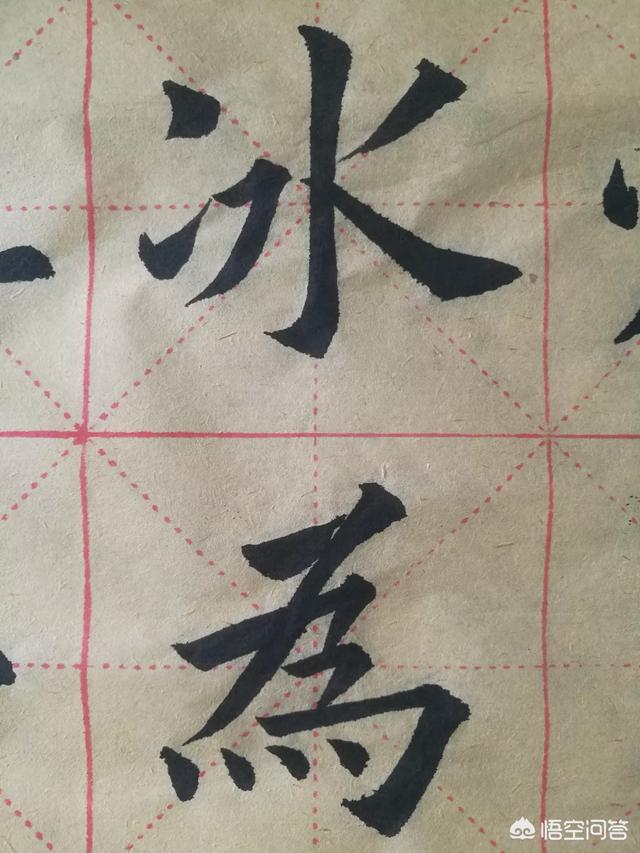 冰
為
悟空问答